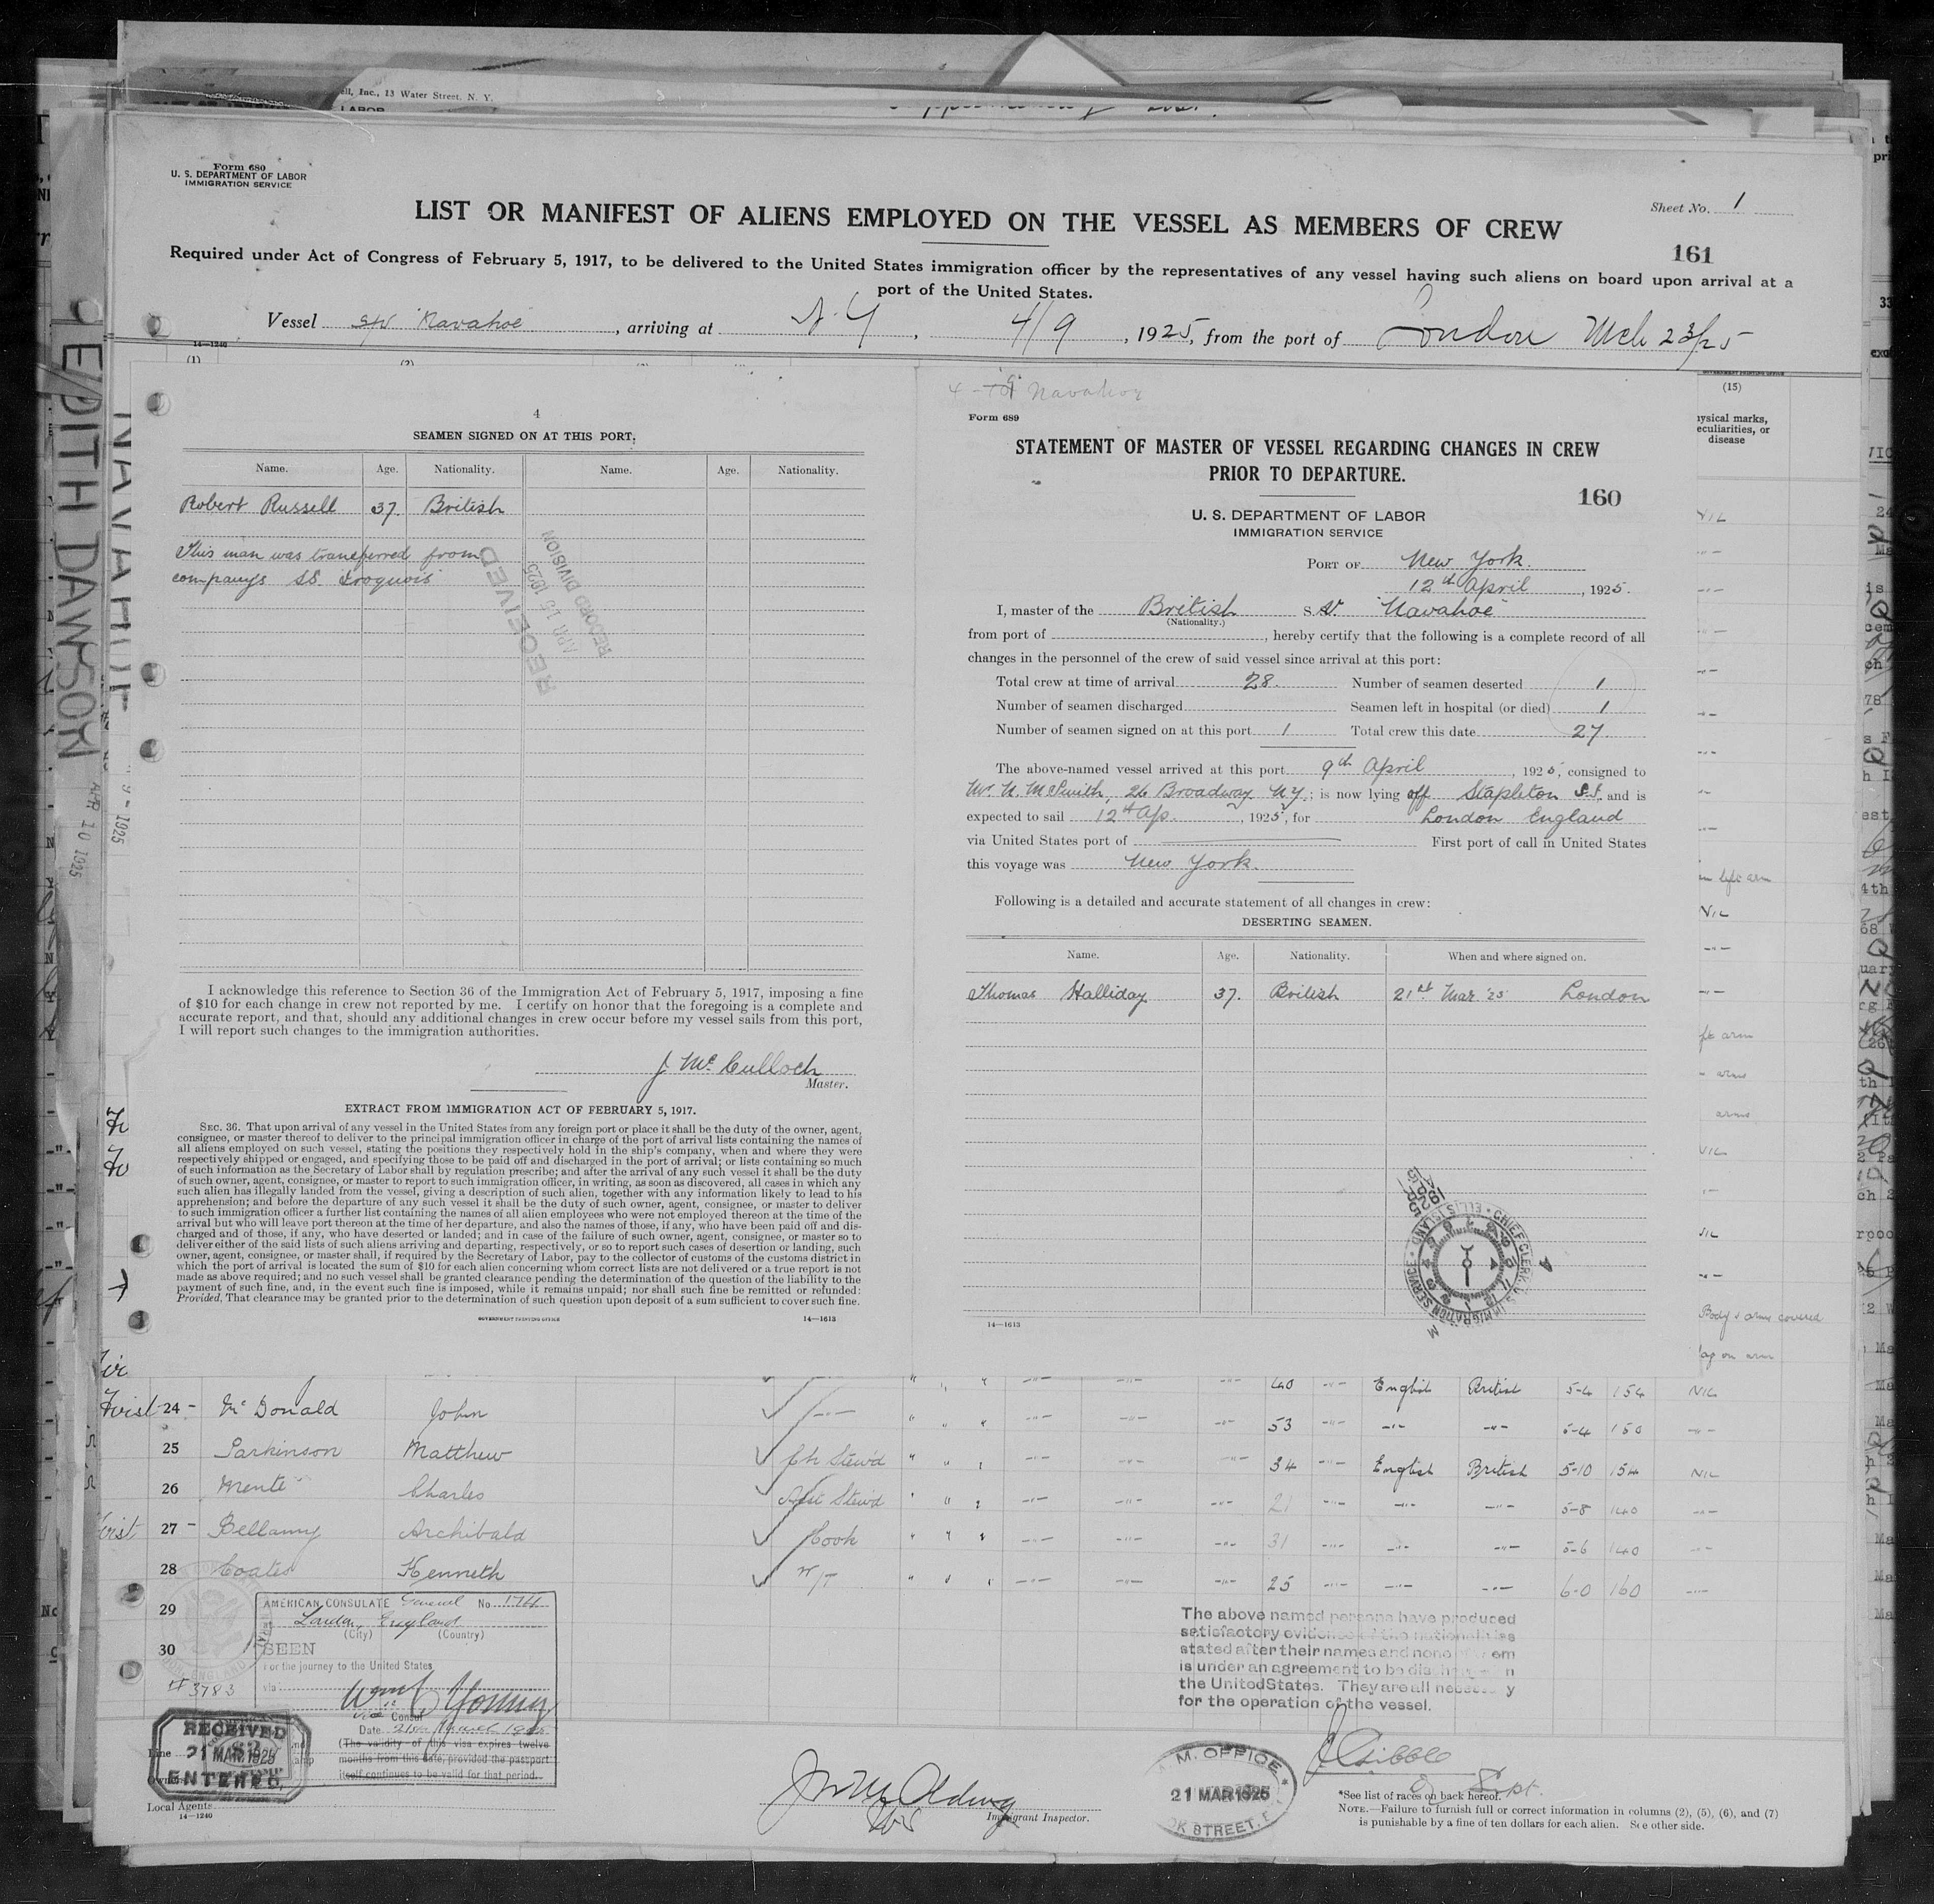 ell, Inc., 13 Water Street, N. Y.
LABOR
Form 680
U. S. DEPARTMENT OF LABOR
IMMIGRATION SERVICE
Sheet No. 1
LIST OR MANIFEST OF ALIENS EMPLOYED ON THE VESSEL AS MEMBERS OF CREW
161
Required under Act of Congress of February 5, 1917, to be delivered to the United States immigration officer by the representatives of any vessel having such aliens on board upon arrival at a
port of the United States.
Vessel "Navahoe", arriving at N.Y, 4/9, 1925, from the port of London Mch 23/25
14—1240
(1)
(2)
EDITH DAWSON
APR 10 1925
NAVAHOE
9 - 1925
4
SEAMEN SIGNED ON AT THIS PORT.
Name. Age. Nationality. Name. Age. Nationality.
Robert Russell 37. British
This man was transferred from
companys SS. Iroquois
RECEIVED
APR 15 1925
RECORD DIVISION
I acknowledge this reference to Section 36 of the Immigration Act of February 5, 1917, imposing a fine
of $10 for each change in crew not reported by me. I certify on honor that the foregoing is a complete and
accurate report, and that, should any additional changes in crew occur before my vessel sails from this port,
I will report such changes to the immigration authorities.
J McCulloch
Master.
EXTRACT FROM IMMIGRATION ACT OF FEBRUARY 5, 1917.
SEC. 36. That upon arrival of any vessel in the United States from any foreign port or place it shall be the duty of the owner, agent,
consignee, or master thereof to deliver to the principal immigration officer in charge of the port of arrival lists containing the names of
all aliens employed on such vessel, stating the positions they respectively hold in the ship's company, when and where they were
respectively shipped or engaged, and specifying those to be paid off and discharged in the port of arrival; or lists containing so much
of such information as the Secretary of Labor shall by regulation prescribe; and after the arrival of any such vessel it shall be the duty
of such owner, agent, consignee, or master to report to such immigration officer, in writing, as soon as discovered, all cases in which any
such alien has illegally landed from the vessel, giving a description of such alien, together with any information likely to lead to his
apprehension; and before the departure of any such vessel it shall be the duty of such owner, agent, consignee, or master to deliver
to such immigration officer a further list containing the names of all alien employees who were not employed thereon at the time of the
arrival but who will leave port thereon at the time of her departure, and also the names of those, if any, who have been paid off and dis-
charged and of those, if any, who have deserted or landed; and in case of the failure of such owner, agent, consignee, or master so to
deliver either of the said lists of such aliens arriving and departing, respectively, or so to report such cases of desertion or landing, such
owner, agent, consignee, or master shall, if required by the Secretary of Labor, pay to the collector of customs of the customs district in
which the port of arrival is located the sum of $10 for each alien concerning whom correct lists are not delivered or a true report is not
made as above required; and no such vessel shall be granted clearance pending the determination of the question of the liability to the
payment of such fine, and, in the event such fine is imposed, while it remains unpaid; nor shall such fine be remitted or refunded:
Provided, That clearance may be granted prior to the determination of such question upon deposit of a sum sufficient to cover such fine.
GOVERNMENT PRINTING OFFICE
14—1613
Navahoe
Form 689
STATEMENT OF MASTER OF VESSEL REGARDING CHANGES IN CREW
PRIOR TO DEPARTURE.
160
U. S. DEPARTMENT OF LABOR
IMMIGRATION SERVICE
PORT OF New York.
12th April, 1925.
I, master of the British S.V. "Navahoe"
(Nationality.)
from port of , hereby certify that the following is a complete record of all
changes in the personnel of the crew of said vessel since arrival at this port:
Total crew at time of arrival 28. Number of seamen deserted 1
Number of seamen discharged Seamen left in hospital (or died) 1
Number of seamen signed on at this port 1 Total crew this date 27
The above-named vessel arrived at this port 9th April, 1925, consigned to
Mr. N. McSmith, 26 Broadway N.Y.; is now lying off Stapleton S.I. and is
expected to sail 12th Ap., 1925, for London England
via United States port of First port of call in United States
this voyage was New York.
Following is a detailed and accurate statement of all changes in crew:
DESERTING SEAMEN.
Name. Age. Nationality. When and where signed on.
Thomas Halliday 37. British 21st Mar '25 London
CHIEF CLERK, U.S. IMMIGRATION SERVICE • ELLIS ISLAND
14—1613
(15)
ysical marks,
eculiarities, or
disease
NIL
left arm
NIL
arm
arms
arms
NIL
NIL
Body & arms covered
on arm
40 English British 5-4 154 NIL
24 McDonald John 53 5-4 150
25 Parkinson Matthew Ch Stew'd 34 English British 5-10 154 NIL
26 Mente Charles Asst Stew'd 21 5-8 140
27 Bellamy Archibald Cook 31 5-6 140
28 Coates Kenneth W/T 25 6-0 160
29
30
#3783
AMERICAN CONSULATE General No. 1711
London, England
(City) (Country)
SEEN
For the journey to the United States
via
Vice Consul
Date 21st March 1925
(The validity of this visa expires twelve
months from this date, provided the passport
itself continues to be valid for that period.
RECEIVED
21 MAR 1925
ENTERED.
Line
Owners
Local Agents
14—1240
Immigrant Inspector.
M. OFFICE
21 MAR 1925
OK STREET. E.
The above named persons have produced
satisfactory evidence of the nationalities
stated after their names and none of them
is under an agreement to be disch n
the United States. They are all necessary
for the operation of the vessel.
*See list of races on back hereof.
NOTE.—Failure to furnish full or correct information in columns (2), (5), (6), and (7)
is punishable by a fine of ten dollars for each alien. See other side.